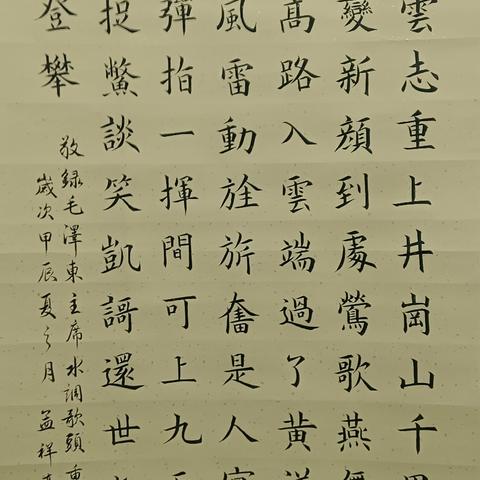 雲志重上井崗山千
變新顔到處鶯歌燕
髙路入雲端過了黄
風雷動旌旂奮是人
彈指一揮間可上九
捉鱉談笑凱謌還世
登攀
敬録毛澤東主席水調歌頭重
歲次甲辰夏之月孟祥